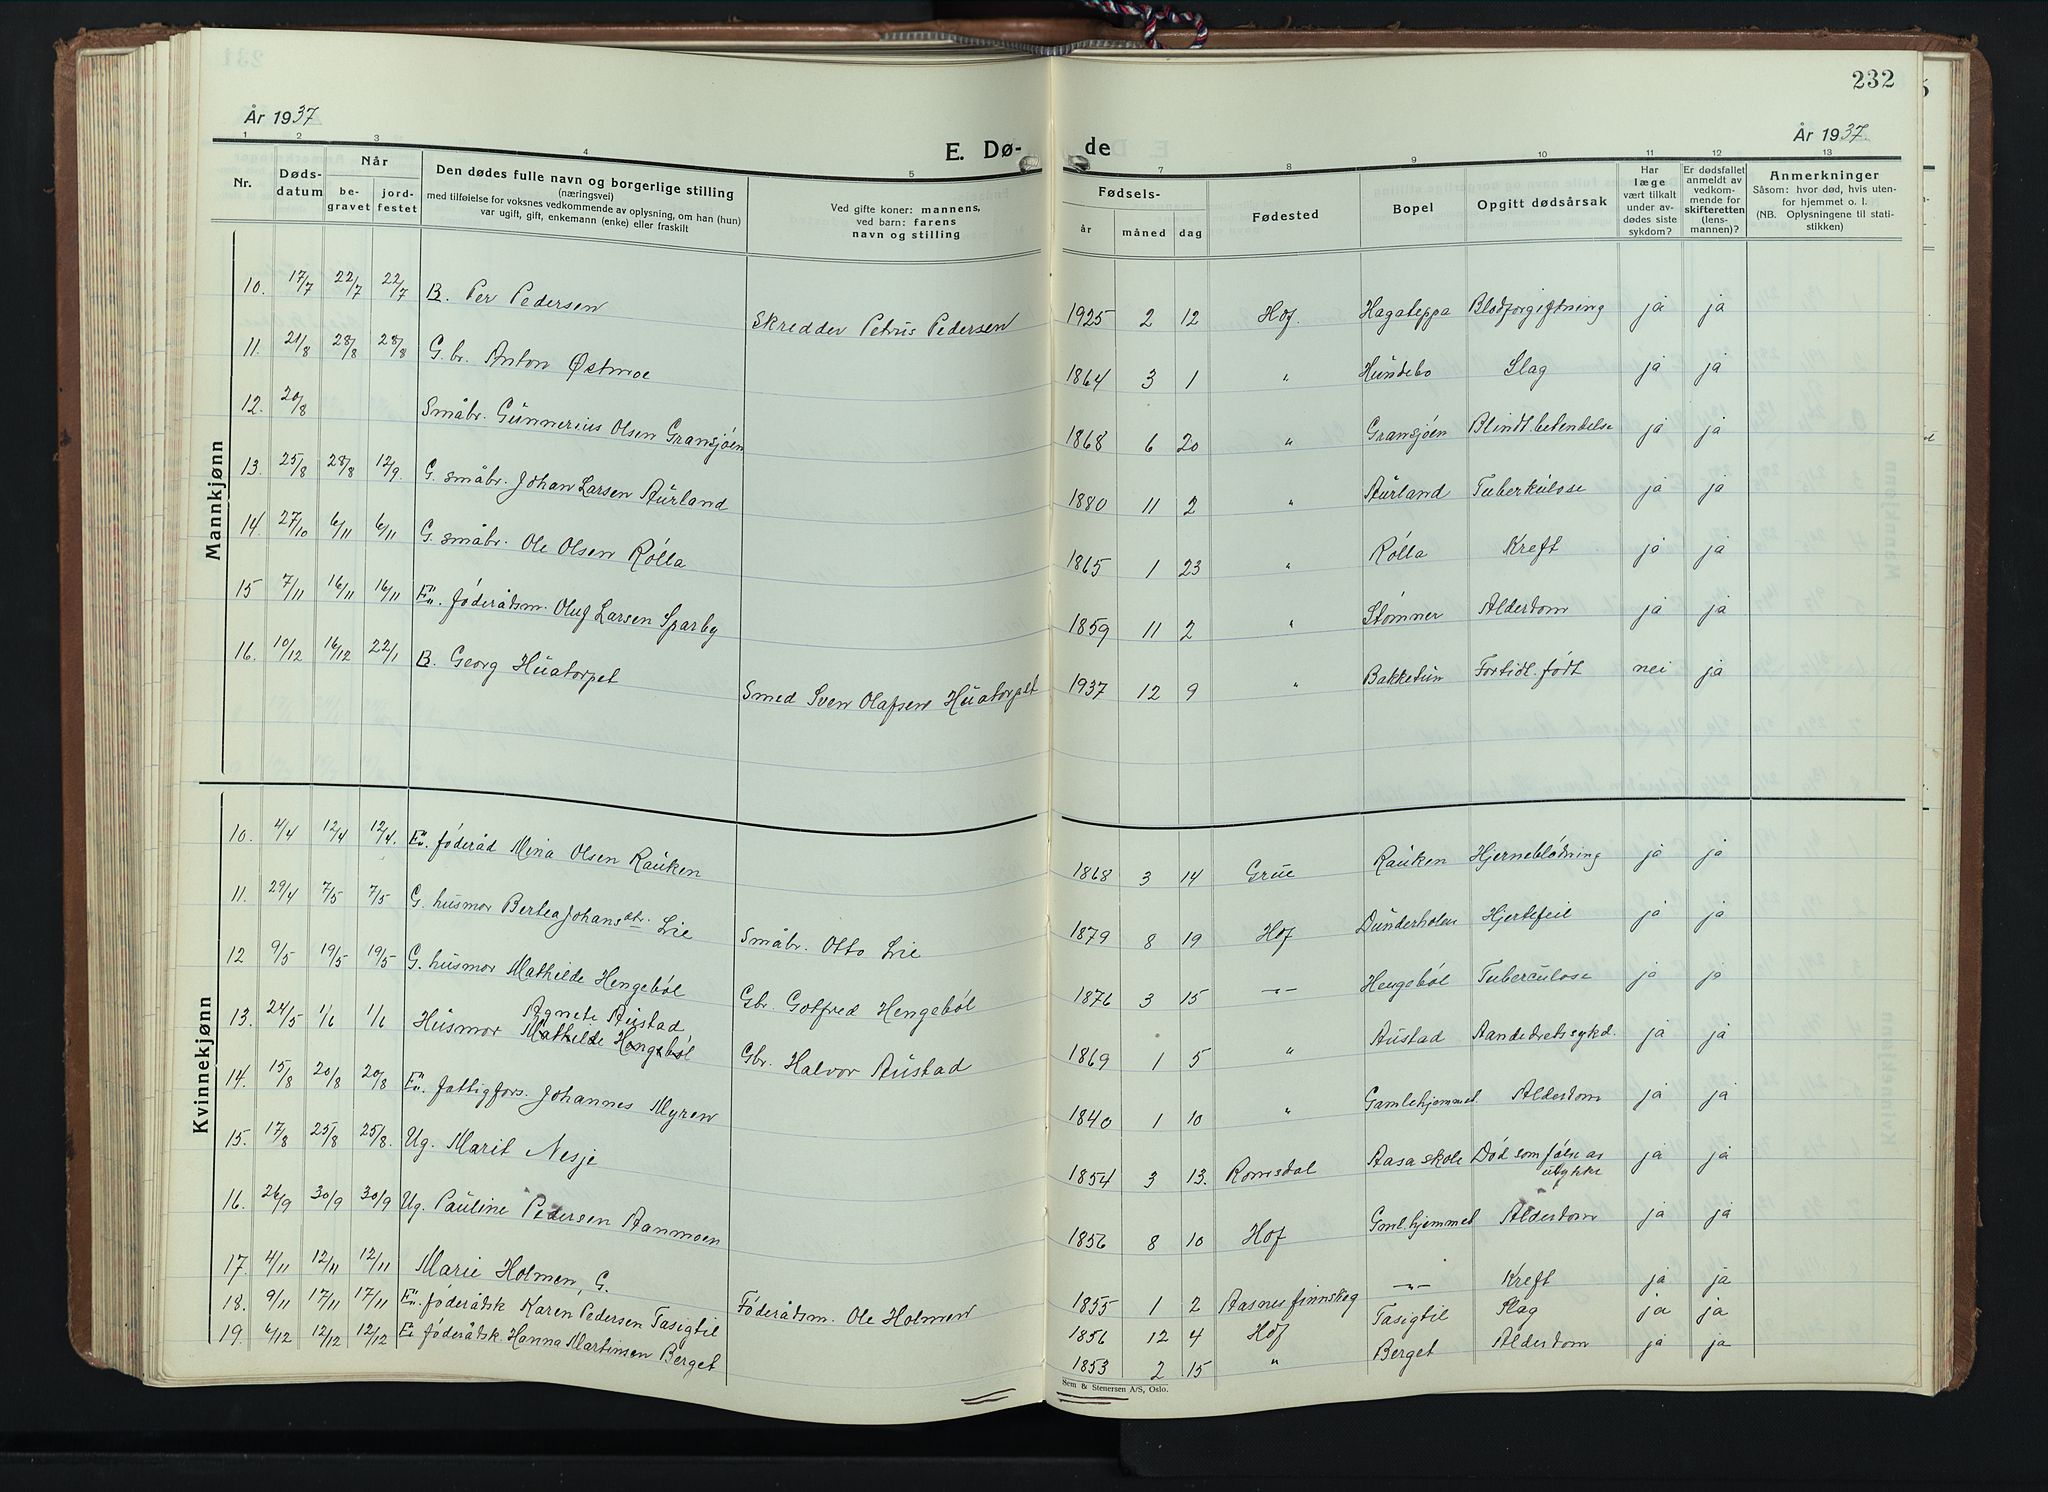 232
År 1937
År 1937
E. Dø- de
1 2 3 4 5 7 8 9 10 11 12 13
Nr.
Døds-
datum
Når
be-
gravet
jord-
festet
Den dødes fulle navn og borgerlige stilling
(næringsvei)
med tilføielse for voksnes vedkommende av oplysning, om han (hun)
var ugift, gift, enkemann (enke) eller fraskilt
Ved gifte koner: mannens,
ved barn: farens
navn og stilling
Fødsels-
år måned dag
Fødested
Bopel
Opgitt dødsårsak
Har
læge
vært tilkalt
under av-
dødes siste
sykdom?
Er dødsfallet
anmeldt av
vedkom-
mende for
skifteretten
(lens-
mannen)?
Anmerkninger
Såsom: hvor død, hvis uten-
for hjemmet o. l.
(NB. Oplysningene til stati-
stikken)
Mannkjønn
10. 17/7 22/7 22/7 B. Per Pedersen Skredder Petrus Pedersen 1925 2 12 Hof. Hagateppa Blodforgiftning ja ja
11. 21/8 28/8 28/8 G. br. Anton Østmoe 1864 3 1 " Hundebo Slag ja ja
12. 20/8 Småbr. Gunnerius Olsen Gransjøen 1868 6 20 " Gransjøen Blindt.betendelse ja ja
13. 25/8 28/8 12/9. G. småbr. Johan Larsen Aurland 1880 11 2 " Aurland Tuberkulose ja ja
14. 27/10 6/11 6/11 G. småbr. Ole Olsen Rølla 1865 1 23 " Rølla Kreft ja ja
15 7/11 16/11 16/11 Em. føderådsm. Oluf Larsen Sparby 1859 11 2 " Stømner Alderdom ja ja
16. 10/12 16/12 22/1 B. Georg Huatorpet Smed Sven Olafsen Huatorpet 1937 12 9 " Bakketun Fortidl. født nei ja
Kvinnekjønn
10. 4/4 12/4 12/4. En. føderåd Mina Olsen Rauken 1868 3 14 Grue Rauken Hjerneblødning ja ja
11. 29/4 7/5 7/5 G. husmor Bertea Johansdtr. Lie Småbr. Otto Lie 1879 8 19 Hof Dunderholen Hjertefeil ja ja
12 9/5 19/5 19/5 G. husmor Mathilde Hengebøl Gbr. Gotfred Hengebøl 1876 3 15 -"- Hengebøl Tuberculose ja ja
Agnete Austad
13. 24/5 1/6 1/6 Husmor Mathilde Hengebøl Gbr. Halvor Austad 1869 1 5 " Austad Aandedretssykd. ja ja
14. 15/8 20/8 20/8 En. fattigfors. Johannes Myren 1840 1 10 " Gamlehjemmet Alderdom ja ja
15. 17/8 25/8 25/8. Ug. Marit Nesje 1854 3 13. Romsdal Aasa skole Død som følse av
ulykke ja ja
16. 26/9 30/9 30/9 Ug. Pauline Pedersen Aanmoen 1856 8 10 Hof Gml.hjemmet Alderdom ja ja
17. 4/11 12/11 12/11 Marie Holmen, G. Føderådsm. Ole Holmen 1855 1 2 Aasnes finnskog -"- Kreft ja ja
18. 9/11 17/11 17/11 En. føderådsk Karen Pedersen Tasigtil 1856 12 4 Hof Tasigtil Slag ja ja
19. 6/12 12/12 12/12 E. føderådsk. Hanna Martinsen Berget 1853 2 15 " Berget Alderdom ja ja
Sem & Stenersen A/S, Oslo.